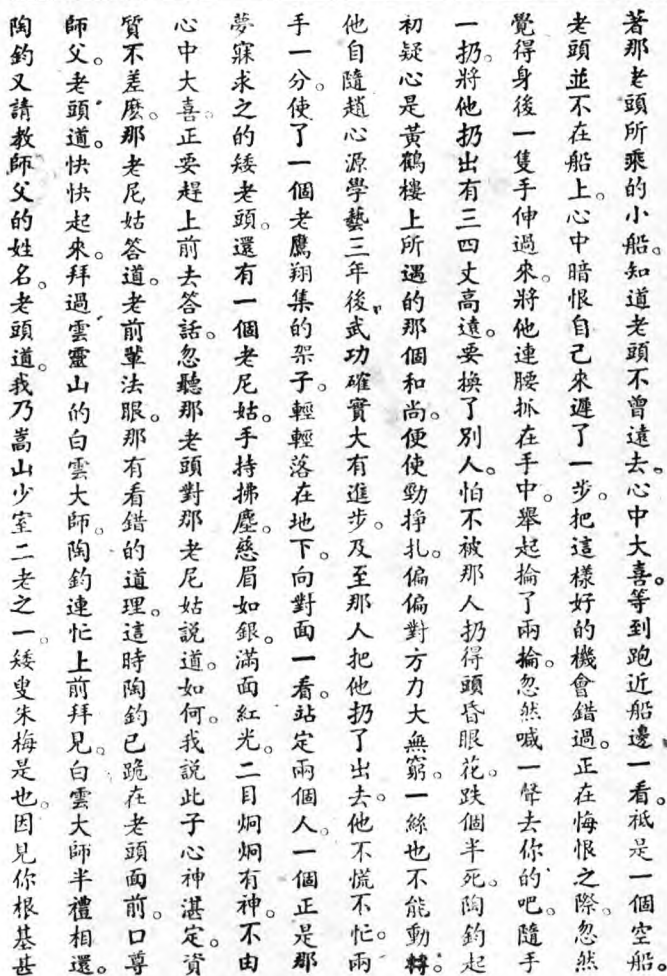 著那老頭所乘的小船。知道老頭不曾遠去。心中大喜。等到跑近船邊一看。祇是一個空船
老頭並不在船上。心中暗恨自己來遲了一步。把這樣好的機會錯過。正在悔恨之際。忽然
覺得身後一隻手伸過來。將他連腰抓在手中。舉起掄了兩掄。忽然喊一聲去你的吧。隨手
一扔。將他扔出有三四丈高遠。要換了別人。怕不被那人扔得頭昏眼花。跌個半死。陶鈞起
初疑心是黃鶴樓上所遇的那個和尚。便使勁掙扎。偏偏對方力大無窮。一絲也不能動轉。
他自隨趙心源學藝三年後。武功確實大有進步。及至那人把他扔了出去。他不慌不忙。兩
手一分。使了一個老鷹翔集的架子。輕輕落在地下。向對面一看。站定兩個人。一個正是那
夢寐求之的矮老頭。還有一個老尼姑。手持拂塵。慈眉如銀。滿面紅光。二目炯炯有神。不由
心中大喜。正要趕上前去答話。忽聽那老頭對那老尼姑說道。如何。我說此子心神湛定。資
質不差麽。那老尼姑答道。老前輩法眼。那有看錯的道理。這時陶鈞已跪在老頭面前。口尊
師父。老頭道。快快起來。拜過雲靈山的白雲大師。陶鈞連忙上前拜見。白雲大師半禮相還。
陶鈞又請教師父的姓名。老頭道。我乃嵩山少室二老之一。矮叟朱梅是也。因見你根基甚